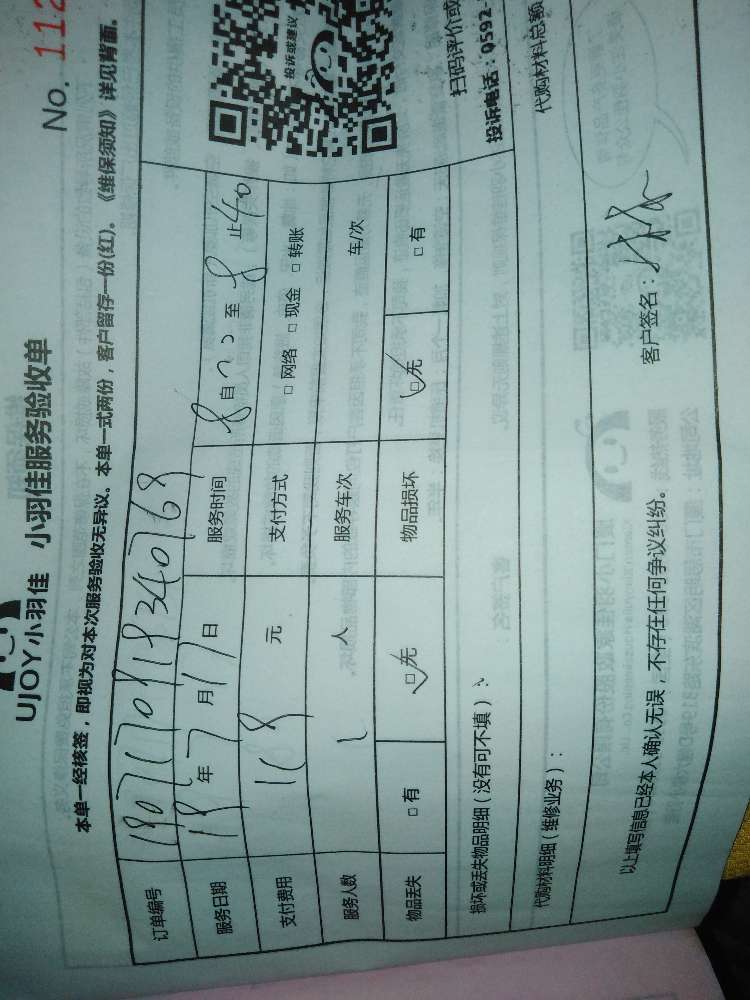 UJOY小羽佳 小羽佳服务验收单
No. 112
本单一经核签,即视为对本次服务验收无异议。本单一式两份,客户留存一份(红)。《维保须知》详见背面。
订单编号
服务日期 18年7月17日 服务时间 8自 至8止40
支付费用 168元 支付方式 □网络 □现金 □转账
服务人数 1人 服务车次 车/次
物品丢失 □有 ☑无 物品损坏 ☑无 □有
投诉或建议
扫码评价或
投诉电话:0592-
损坏或丢失物品明细(没有可不填):
代购材料明细(维修业务):
代购材料总额
以上填写信息已经本人确认无误,不存在任何争议纠纷。
客户签名: